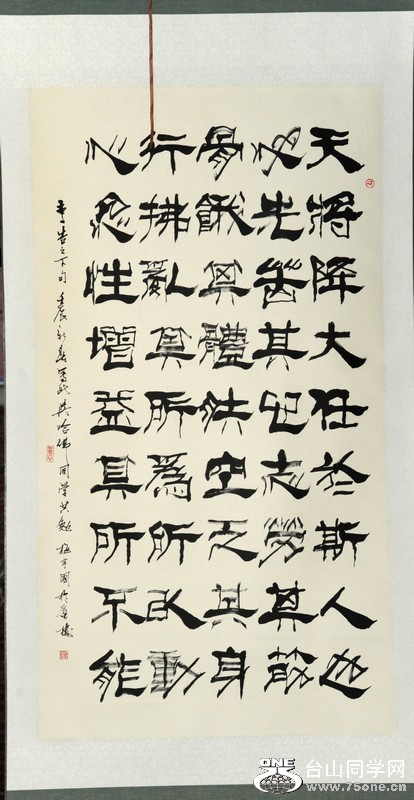 天將降大任於斯人也
必先苦其心志勞其筋
骨餓其體肤空乏其身
行拂亂其所為所以動
心忍性增益其所不能
告子下句 壬辰新春 哈佛同学共勉
ONE
台山同学网
www.75one.cn